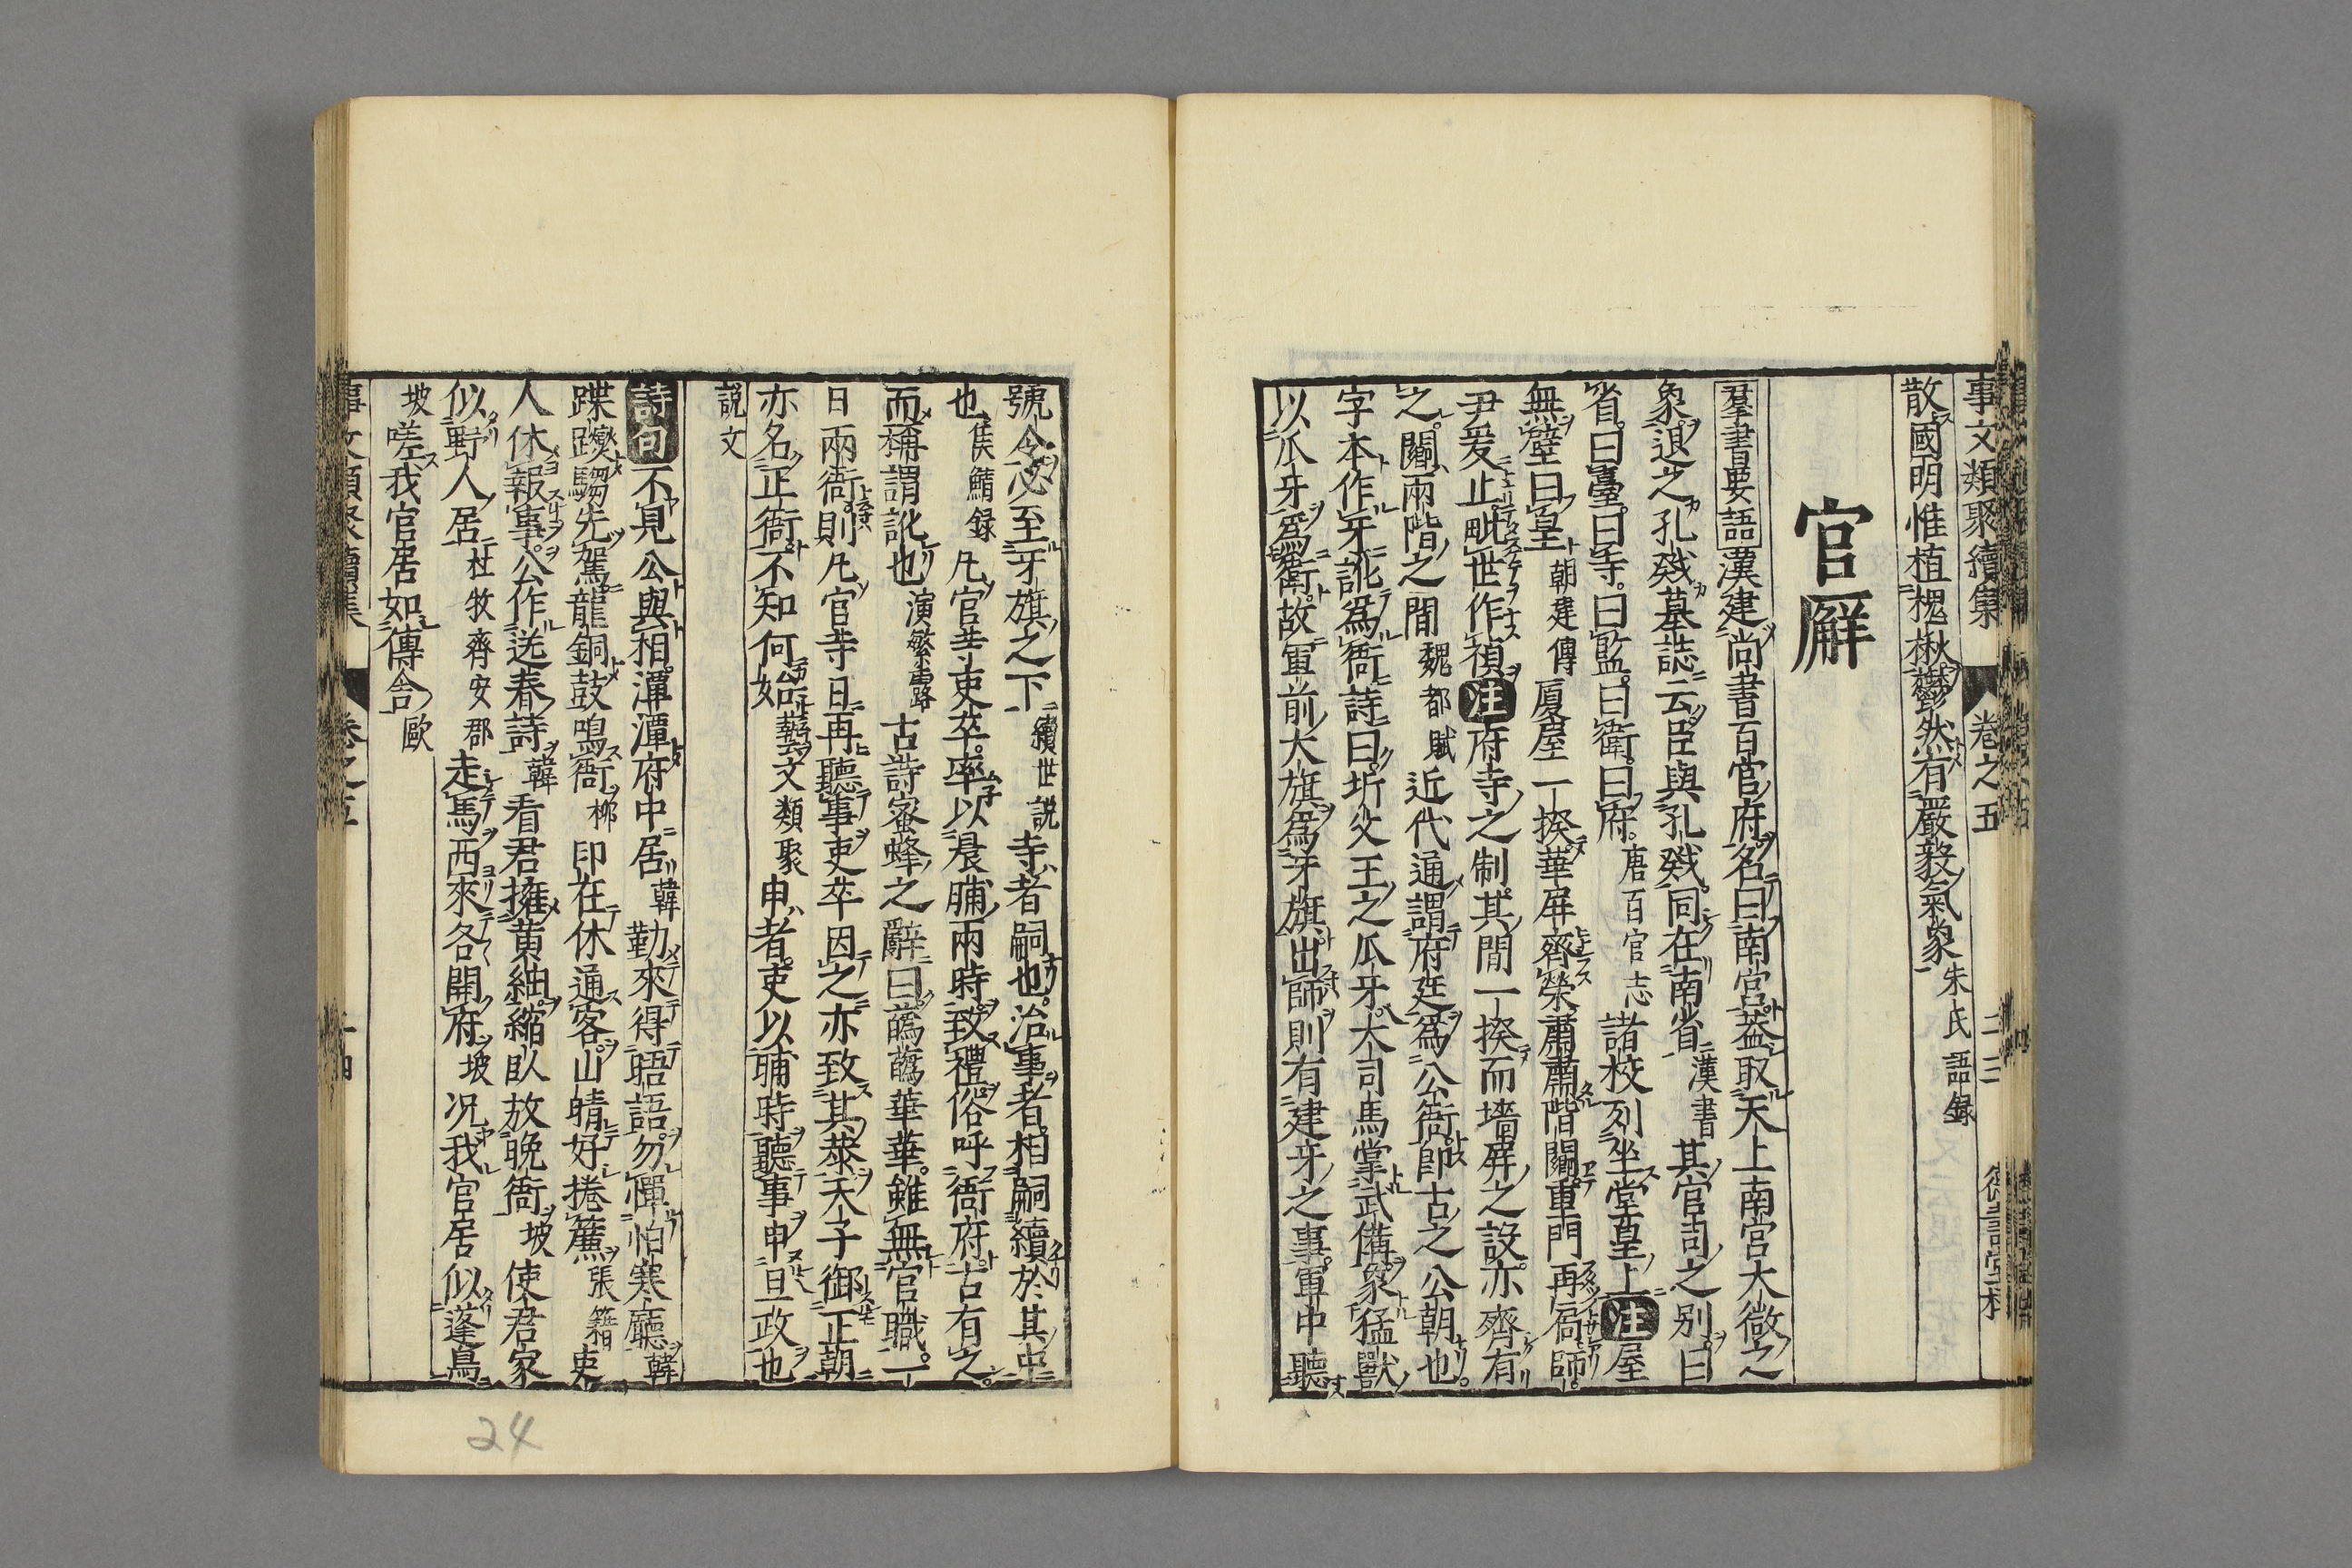 事文類聚續集 卷之五 二三
散國明惟植槐楸鬱然有嚴毅氣象朱氏語録
官廨
羣書要語漢建尚書百官府名曰南宮葢取天上南宮太微之
象退之孔戣墓誌云臣與孔戣同在南省漢書其官司之别曰
省曰臺曰寺曰監曰衛曰府唐百官志諸校列坐堂皇上注屋
無壁曰皇朝建傳厦屋一揆華屏齊榮肅肅階闥重門再扃師
尹爰止毗世作禎注府寺之制其間一揆而墻屏之設亦齊有
之闥兩階之間魏都賦近代通謂府廷爲公衙即古之公朝也
字本作牙訛爲衙詩曰圻父王之爪牙大司馬掌武備象猛獸
以爪牙爲衛故軍前大旗爲牙旗出師則有建牙之事軍中聽
號令必至牙旗之下續世説寺者嗣也治事者相嗣續於其中
也侯鯖録凡官寺吏卒率以晨晡兩時致禮俗呼衙府古有之
而稱謂訛也演繁露古詩蜜蜂之辭曰蔿蔿華華雖無官職一
日兩衙則凡官寺日再聽事吏卒因之亦致其㳟天子御正朝
亦名正衙不知何始藝文類聚申者吏以晡時聽事申旦政也
説文
詩句不見公與相潭潭府中居韓勤來得晤語勿憚怕寒廳韓
蹀躞騶先駕籠銅鼓鳴衙柳印在休通客山晴好捲簾張籍吏
人休報事公作送春詩韓看君擁黄紬縮臥放晚衙坡使君家
似野人居杜牧齊安郡走馬西來各開府坡况我官居似蓬島
坡嗟我官居如傳舎歐
事文類聚續集 卷之五
24